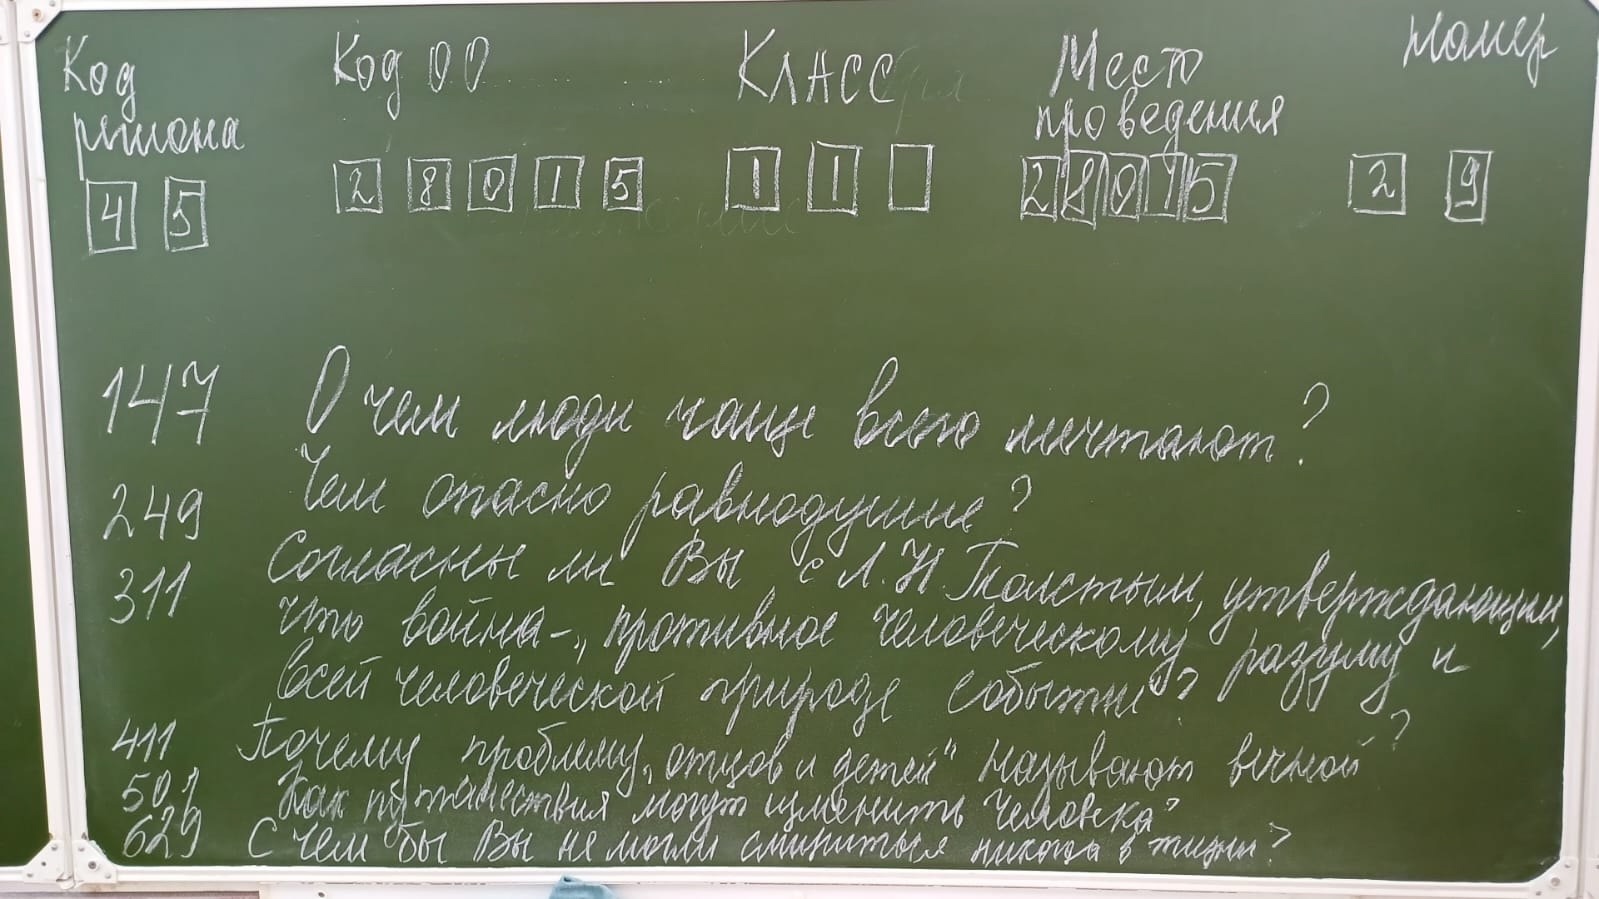 Код региона
Код ОО
Класс
Место проведения
Номер
4 5
2 8 0 1 5
1 1
2 8 0 1 5
2 9
147 О чем люди чаще всего мечтают?
249 Чем опасно равнодушие?
311 Согласны ли Вы с Л.Н Толстым, утверждающим,
что война - „противное человеческому разуму и
всей человеческой природе событие"?
411 Почему проблему „отцов и детей" называют вечной?
507 Как путешествия могут изменить человека?
629 С чем бы Вы не могли смириться никогда в жизни?